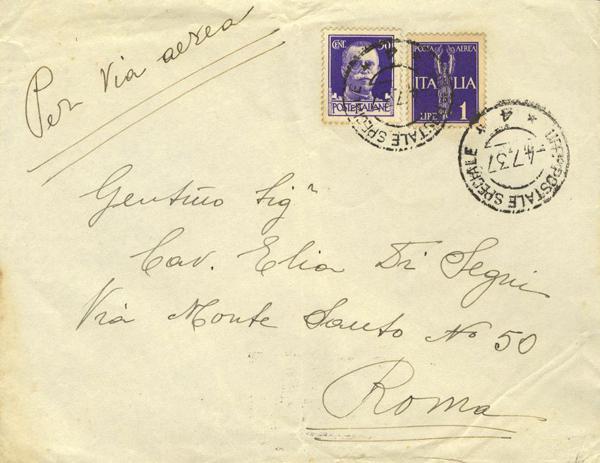 Per Via aerea
CENT. 50
POSTE ITALIANE
POSTA AEREA
ITALIA
LIRE 1
POSTALE SPECIALE
UFF. POSTALE SPECIALE * 4 *
4.7.37
Gentil'mo Sigr
Cav. Elia Di Segni
Via Monte Santo No 50
Roma